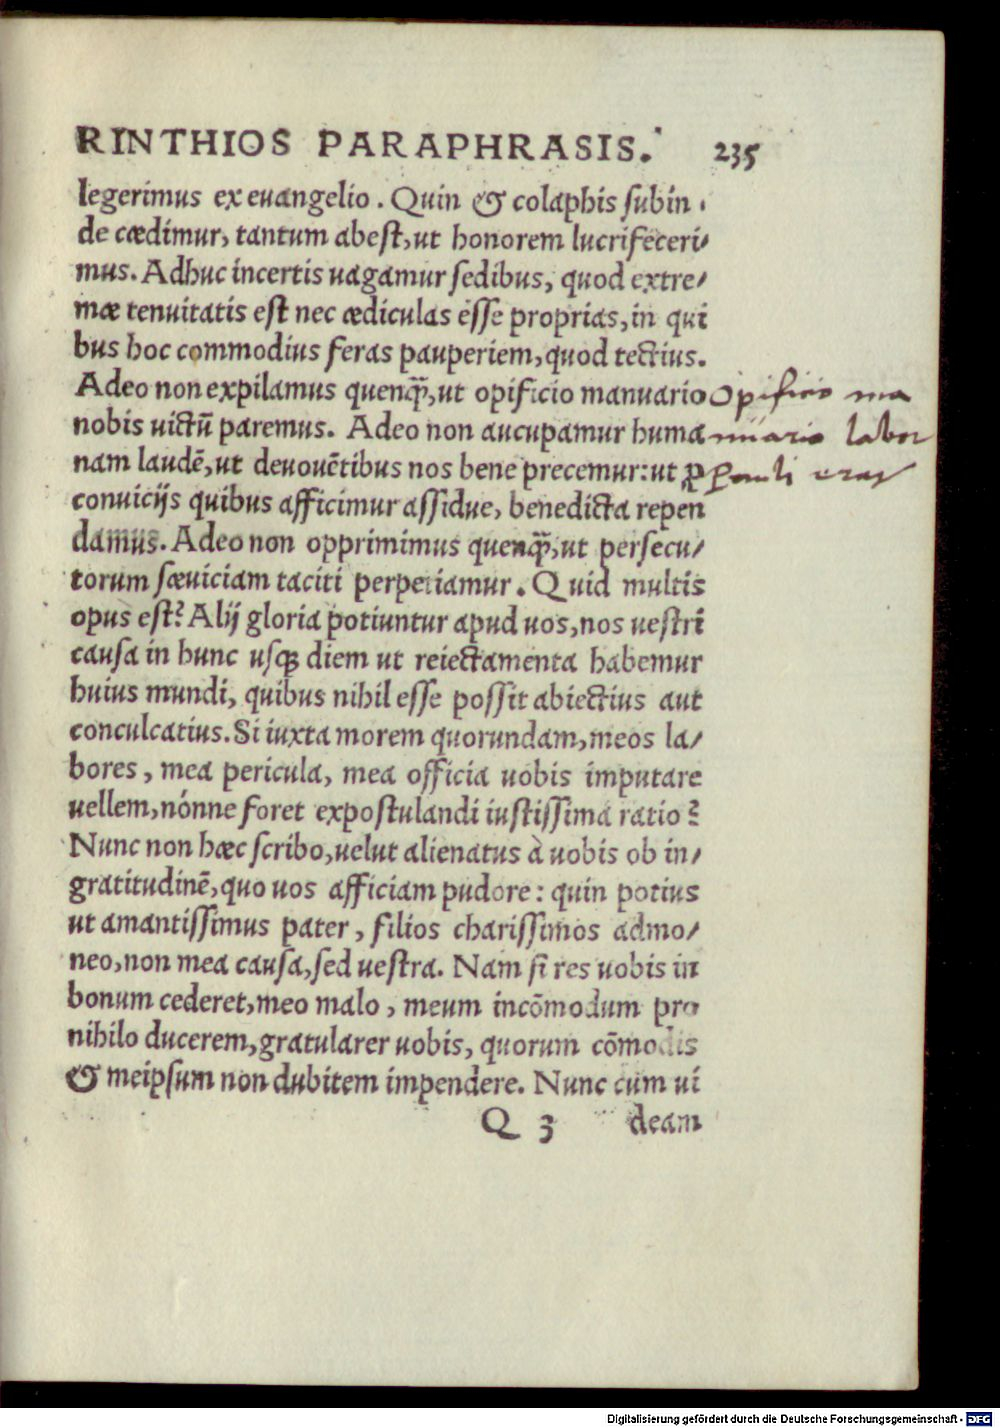 RINTHIOS PARAPHRASIS. 235
legerimus ex euangelio. Quin & colaphis subin-
de cædimur, tantum abest, ut honorem lucrifeceri/
mus. Adhuc incertis uagamur sedibus, quod extre/
mæ tenuitatis est nec ædiculas esse proprias, in qui
bus hoc commodius feras pauperiem, quod tectius.
Adeo non expilamus quenq̃, ut opificio manuario
nobis uictū paremus. Adeo non aucupamur huma
nam laudē, ut deuouētibus nos bene precemur: ut ꝓ
conuicijs quibus afficimur assidue, benedicta repen
damus. Adeo non opprimimus quenq̃, ut persecu/
torum sæuiciam taciti perpetiamur. Quid multis
opus est? Alij gloria potiuntur apud uos, nos uestri
causa in hunc usqȝ diem ut reiectamenta habemur
huius mundi, quibus nihil esse possit abiectius aut
conculcatius. Si iuxta morem quorundam, meos la/
bores, mea pericula, mea officia uobis imputare
uellem, nónne foret expostulandi iustissima ratio?
Nunc non hæc scribo, uelut alienatus à uobis ob in/
gratitudinē, quo uos afficiam pudore: quin potius
ut amantissimus pater, filios charissimos admo/
neo, non mea causa, sed uestra. Nam si res uobis in
bonum cederet, meo malo, meum incōmodum pro
nihilo ducerem, gratularer uobis, quorum cōmodis
& meipsum non dubitem impendere. Nunc cum ui
Q 3 deam
Opificio ma
nuario labor
Pauli erat
Digitalisierung gefördert durch die Deutsche Forschungsgemeinschaft - DFG